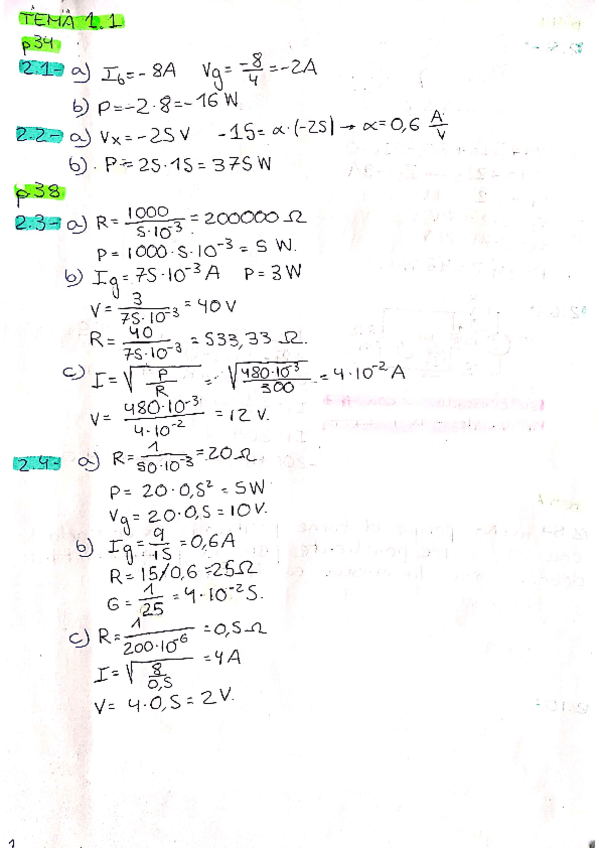 TEMA 1.1
p34
2.1- a) I6=-8A Vg= -8/4 =-2A
b) P=-2·8=-16 W
2.2- a) Vx=-25V -15=α·(-25) → α=0,6 A/V
b). P=25·15=375W
p38
2.3- a) R= 1000/5·10^-3 =200000 Ω
P=1000·5·10^-3=5 W.
b) Ig=75·10^-3 A P=3W
V= 3/75·10^-3 =40V
R= 40/75·10^-3 =533,33 Ω.
c) I=√(P/R) = √(480·10^-3/300) =4·10^-2 A
V= 480·10^-3/4·10^-2 =12 V.
2.4- a) R= 1/50·10^-3 =20Ω
P= 20·0,5² =5W
Vg=20·0,5=10V.
b) Ig= 9/15 =0,6A
R=15/0,6=25Ω
G= 1/25 =4·10^-2 S.
c) R= 1/200·10^-6 =0,5Ω
I=√(8/0,5) =4A
V= 4·0,5=2V.
1